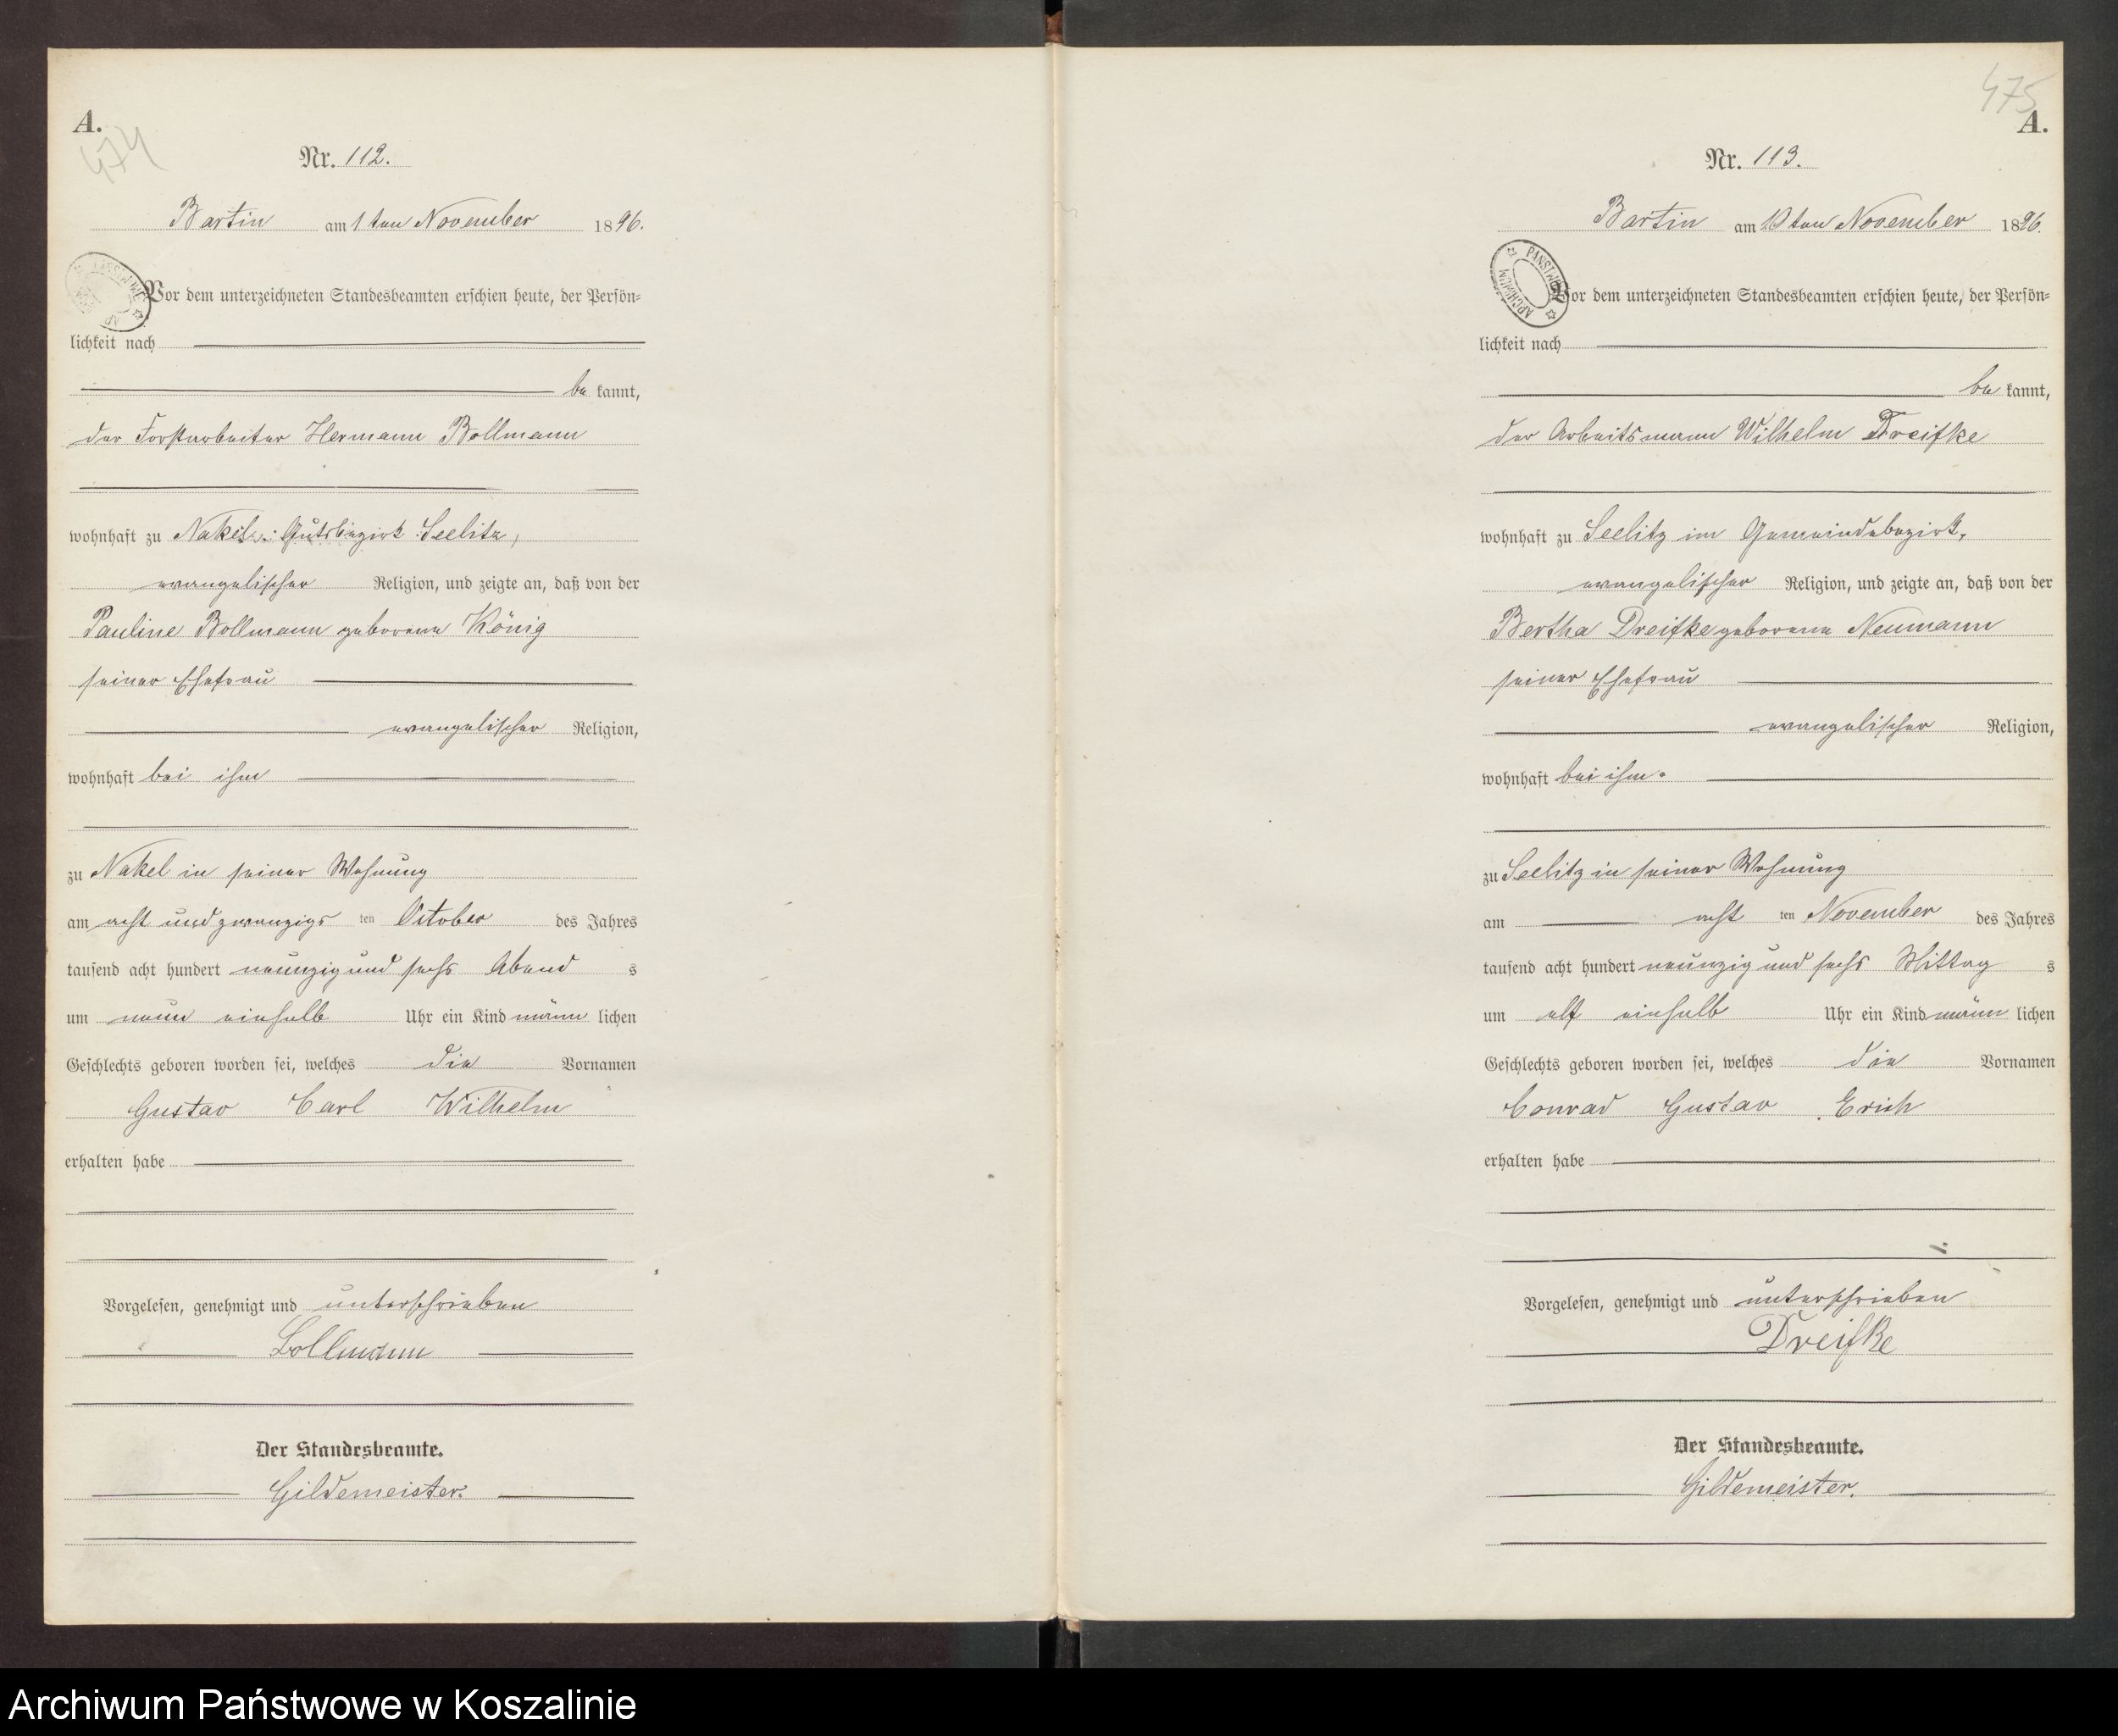 A.
474
Nr. 112.
Bartin am 1ten November 1896.
Vor dem unterzeichneten Standesbeamten erschien heute, der Persön=
lichkeit nach
be kannt,
der Forstarbeiter Hermann Bollmann
wohnhaft zu Nakel Gutsbezirk Seelitz,
evangelischer Religion, und zeigte an, daß von der
Pauline Bollmann geborene König
seiner Ehefrau
evangelischer Religion,
wohnhaft bei ihm
zu Nakel in seiner Wohnung
am acht und zwanzigs ten October des Jahres
tausend acht hundert neunzig und sechs Abend s
um neun einhalb Uhr ein Kind männ lichen
Geschlechts geboren worden sei, welches die Vornamen
Gustav Carl Wilhelm
erhalten habe
Vorgelesen, genehmigt und unterschrieben
Bollmann
Der Standesbeamte.
Gildemeister.
475
A.
Nr. 113.
Bartin am 10ten November 1896.
PAŃSTWOWE ARCHIWUM
Vor dem unterzeichneten Standesbeamten erschien heute, der Persön=
lichkeit nach
be kannt,
der Arbeitsmann Wilhelm Dreifke
wohnhaft zu Seelitz im Gemeindebezirk,
evangelischer Religion, und zeigte an, daß von der
Bertha Dreifke geborene Neumann
seiner Ehefrau
evangelischer Religion,
wohnhaft bei ihm.
zu Seelitz in seiner Wohnung
am acht ten November des Jahres
tausend acht hundert neunzig und sechs Mittag s
um elf einhalb Uhr ein Kind männ lichen
Geschlechts geboren worden sei, welches die Vornamen
Conrad Gustav Erich
erhalten habe
Vorgelesen, genehmigt und unterschrieben
Dreifke
Der Standesbeamte.
Gildemeister.
Archiwum Państwowe w Koszalinie